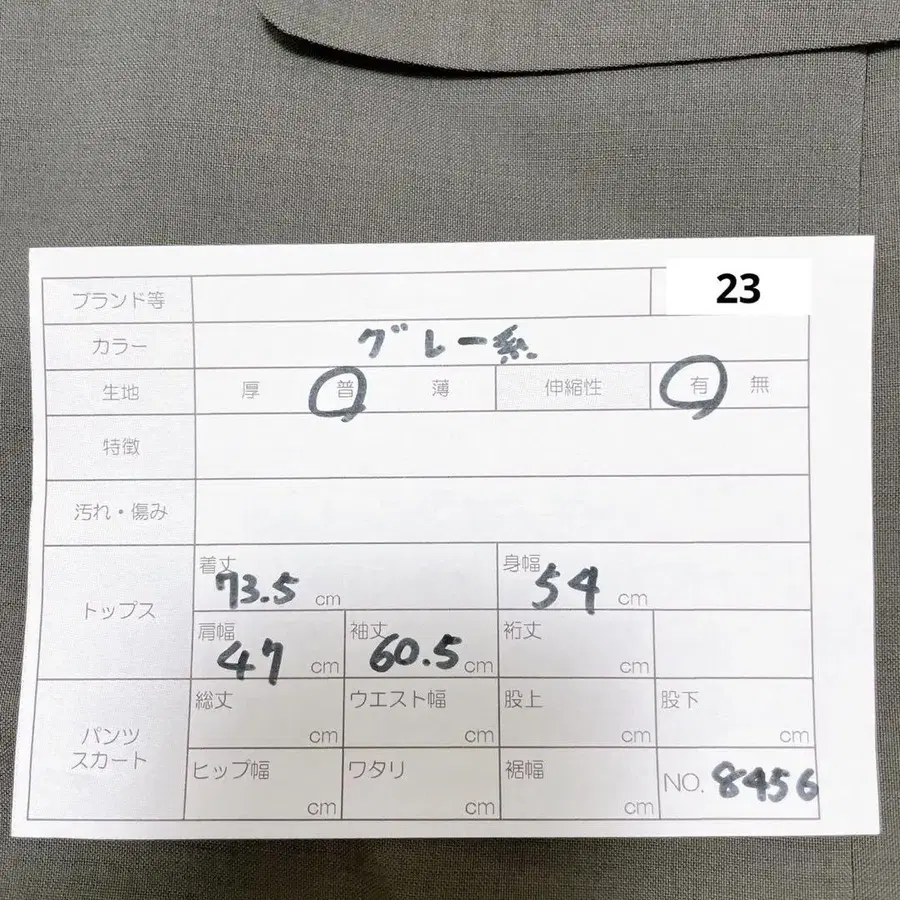 ブランド等 23
カラー グレー系
生地 厚 普 薄 伸縮性 有 無
特徴
汚れ・傷み
トップス
着丈 73.5 cm 身幅 54 cm
肩幅 47 cm 袖丈 60.5 cm 裄丈 cm
パンツ
スカート
総丈 cm ウエスト幅 cm 股上 cm 股下 cm
ヒップ幅 cm ワタリ cm 裾幅 cm NO. 8456